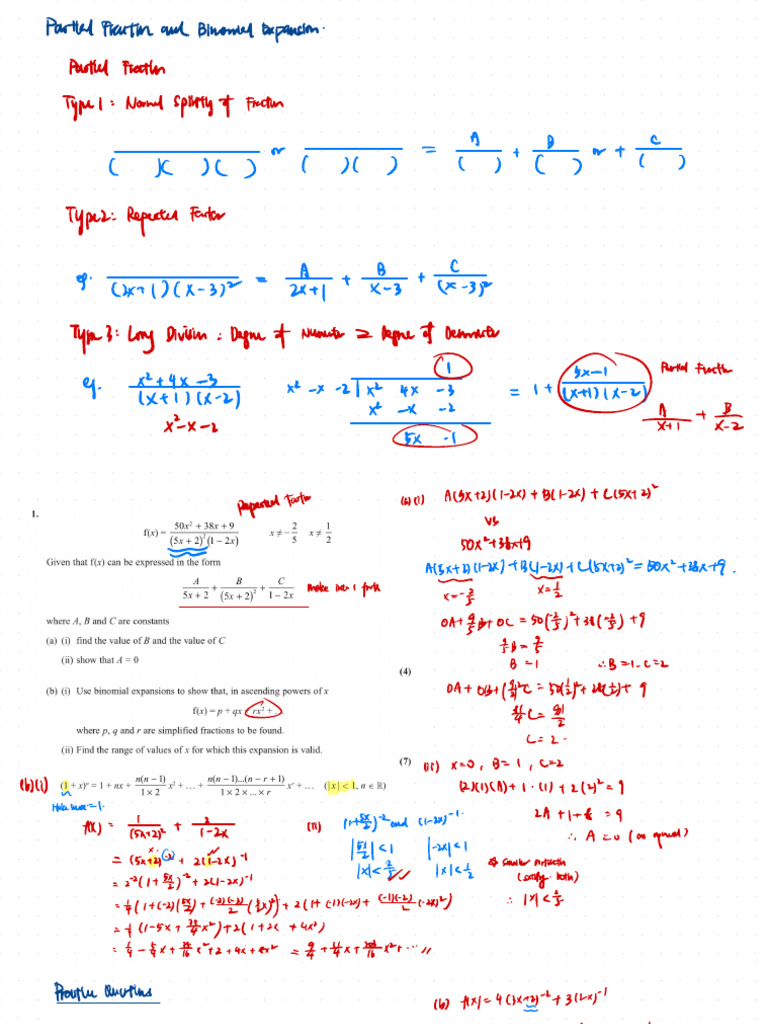 Partial Fraction and Binomial Expansion.
Partial Fraction
Type 1: Normal Splitting of Fraction
( )( )( ) or ( )( ) = A/( ) + B/( ) or + C/( )
Type 2: Repeated Factor
eg. /(2x+1)(x-3)² = A/2x+1 + B/x-3 + C/(x-3)²
Type 3: Long Division: Degree of Numerator ≥ Degree of Denominator
eg. x²+4x-3/(x+1)(x-2)
x²-x-2
1
x²-x-2 | x² 4x -3
x² -x -2
5x -1
= 1 + 5x-1/(x+1)(x-2)
Partial Fraction
A/x+1 + B/x-2
1.
Repeated Factor
f(x) = 50x² + 38x + 9/(5x + 2)²(1 – 2x) x ≠ –2/5 x ≠ 1/2
Given that f(x) can be expressed in the form
A/5x + 2 + B/(5x + 2)² + C/1 – 2x
make into 1
where A, B and C are constants
(a) (i) find the value of B and the value of C
(ii) show that A = 0
(4)
(b) (i) Use binomial expansions to show that, in ascending powers of x
f(x) = p + qx + rx² + ...
where p, q and r are simplified fractions to be found.
(ii) Find the range of values of x for which this expansion is valid.
(7)
(a)(i) A(5x+2)(1-2x) + B(1-2x) + C(5x+2)²
vs
50x²+38x+9
A(5x+2)(1-2x)+B(1-2x)+C(5x+2)² = 50x²+38x+9.
x=-2/5 x=1/2
0A+9/5B+0C = 50(-2/5)²+38(-2/5)+9
9/5B = 9/5
B = 1 ∴B=1, C=2
0A + 0B + (9/2)²C = 50(1/2)²+38(1/2)+9
81/4C = 81/2
C = 2.
(ii) x=0, B=1, C=2
(2)(1)(A) + 1·(1) + 2(2)² = 9
2A + 1 + 8 = 9
∴ A=0 (as required)
(b)(i) (1 + x)ⁿ = 1 + nx + n(n – 1)/1 × 2 x² + ... + n(n – 1)...(n – r + 1)/1 × 2 × ... × r xʳ + ... (|x| < 1, n ∈ ℝ)
=1.
f(x) = 1/(5x+2)² + 2/1-2x
= (5x+2)⁻² + 2(1-2x)⁻¹
= 2⁻²(1+5x/2)⁻² + 2(1-2x)⁻¹
= 1/4(1+(-2)(5x/2)+(-2)(-3)/2(5/2x)²) + 2(1+(-1)(-2x)+(-1)(-2)/2(-2x)²)
= 1/4(1-5x+75/4x²)+2(1+2x+4x²)
= 1/4-5/4x+75/16x²+2+4x+8x² = 9/4+11/4x+203/16x²+... //
(ii) (1+5x/2)⁻² and (1-2x)⁻¹
|5x/2|<1 |-2x|<1
|x|<2/5 |x|<1/2
(satisfy both)
∴ |x|<2/5
Practice Questions
(b) f(x) = 4(3x+2)⁻² + 3(1-x)⁻¹